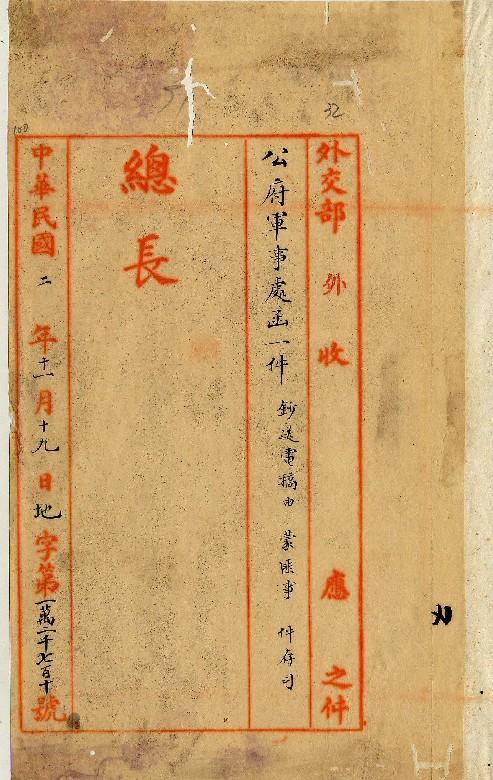 32
100
外交部 外 收 應 之件
公府軍事處函一件 鈔送電稿由 蒙匪事 件存司
總長
中華民國二年十一月十九日地字第一萬二千七百十號